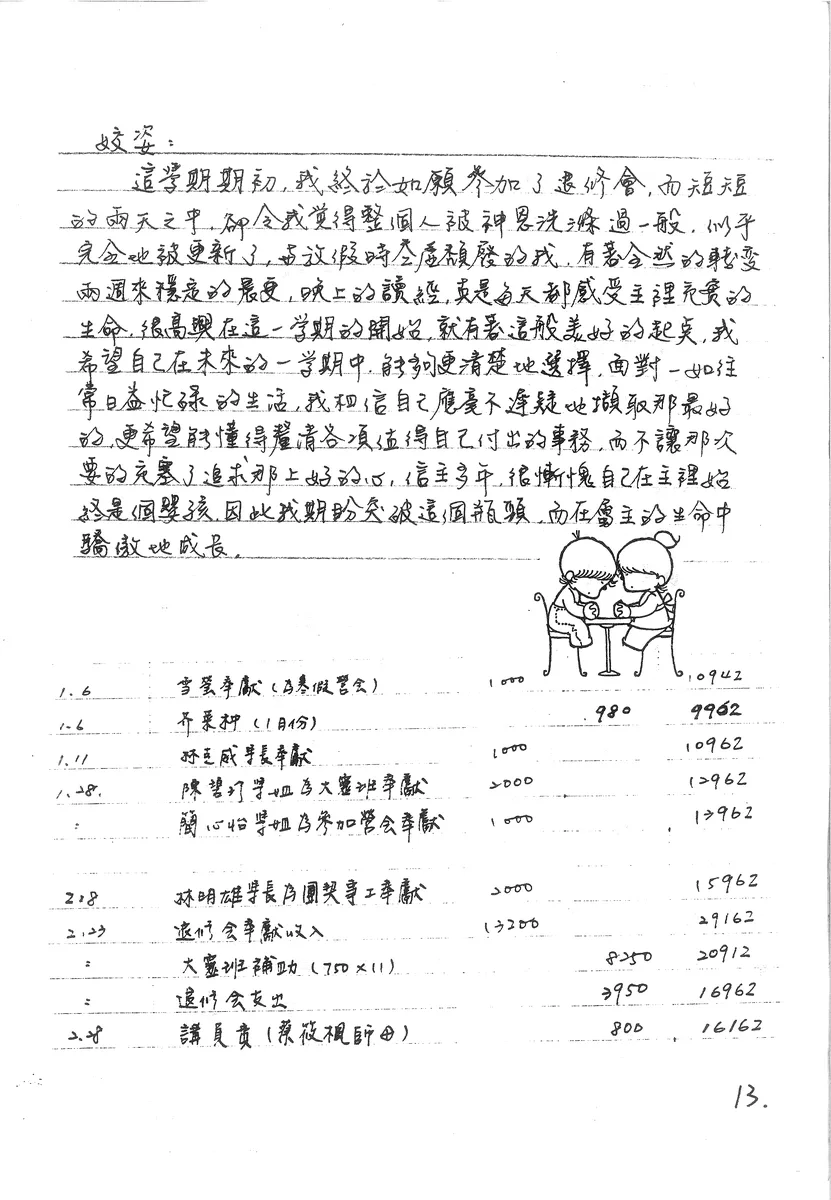 姣姿：
這學期期初，我終於如願參加了退修會，而短短
的兩天之中，卻令我觉得整個人被神恩洗滌過一般，似乎
完全地被更新了，与放假時季度頹廢的我，有著全然的轉变
兩週來穩定的晨更，晚上的讀經，真是每天都感受主裡充實的
生命，很高興在這一学期的開始，就有著這般美好的起点，我
希望自己在未來的一学期中，能夠更清楚地選擇，面對一如往
常日益忙碌的生活，我相信自己應毫不遲疑地擷取那最好
的，更希望能懂得釐清各項值得自己付出的事務，而不讓那次
要的充塞了追求那上好的心，信主多年，很慚愧自己在主裡始
終是個嬰孩，因此我期盼突破這個瓶頸，而在屬主的生命中
驕傲地成长。
1.6 雪瑩奉獻（為寒假營会） 1000 10942
1.6 齐菜种（1月份） 980 9962
1.11 林克威學長奉獻 1000 10962
1.28. 陳碧玲學姐為大靈班奉獻 2000 12962
： 簡心怡學姐為參加營会奉獻 1000 13962
2.8 林明雄學長為團契事工奉獻 2000 15962
2.23 退修会奉獻收入 13200 29162
： 大靈班補助（750×11） 8250 20912
： 退修会支出 3950 16962
2.28 講員費（蔡筱楓師母） 800 16162
13.